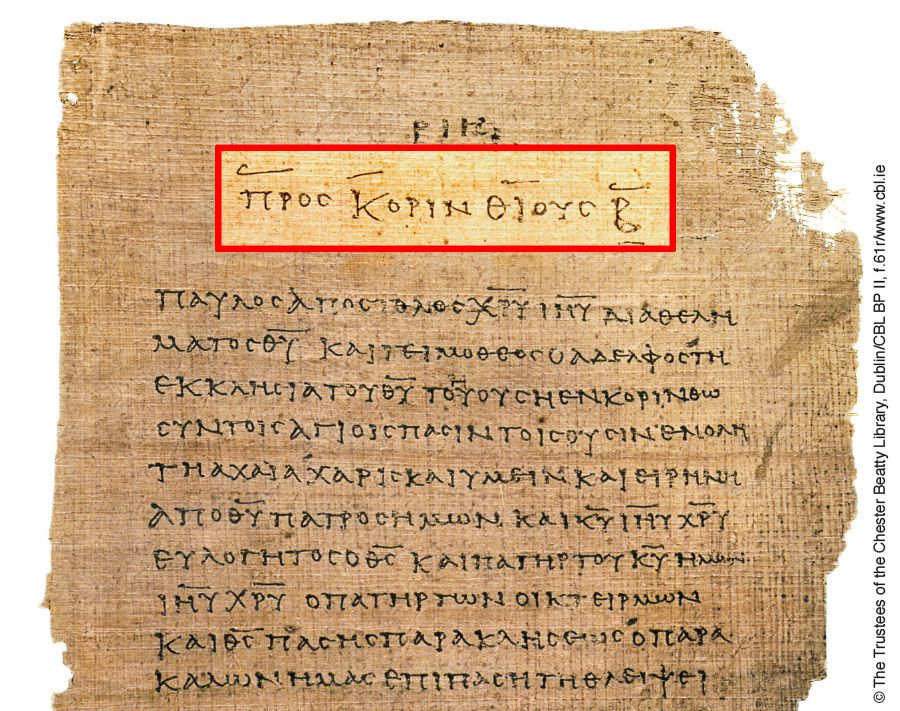 ΡΙΗ
ΠΡΟϹ ΚΟΡΙΝΘΙΟΥϹ Β̅
ΠΑΥΛΟϹΑΠΟϹΤΟΛΟϹΧ̅Ρ̅Υ̅ Ι̅Η̅Υ̅ ΔΙΑΘΕΛΗ
ΜΑΤΟϹΘ̅Υ̅ ΚΑΙΤΕΙΜΟΘΕΟϹΟΑΔΕΛΦΟϹΤΗ
ΕΚΚΛΗϹΙΑΤΟΥΘ̅Υ̅ ΤΗΟΥϹΗΕΝΚΟΡΙΝΘΩ
ϹΥΝΤΟΙϹΑΓΙΟΙϹΠΑϹΙΝΤΟΙϹΟΥϹΙΝΕΝΟΛΗ
ΤΗΑΧΑΙΑΧΑΡΙϹΚΑΙΥΜΕΙΝΚΑΙΕΙΡΗΝΗ
ΑΠΟΘ̅Υ̅ΠΑΤΡΟϹΗΜΩΝ ΚΑΙΚ̅Υ̅ Ι̅Η̅Υ̅ Χ̅Ρ̅Υ̅
ΕΥΛΟΓΗΤΟϹΟΘ̅Ϲ̅ ΚΑΙΠΑΤΗΡΤΟΥΚ̅Υ̅ΗΜΩΝ
Ι̅Η̅Υ̅ Χ̅Ρ̅Υ̅ ΟΠΑΤΗΡΤΩΝΟΙΚΤΕΙΡΜΩΝ
ΚΑΙΘ̅Ϲ̅ ΠΑϹΗϹΠΑΡΑΚΛΗϹΕΩϹΟΠΑΡΑ
ΚΑΛΩΝΗΜΑϹΕΠΙΠΑϹΗΤΗΘΛΕΙΨΕΙ
© The Trustees of the Chester Beatty Library, Dublin/CBL BP II, f.61r/www.cbl.ie